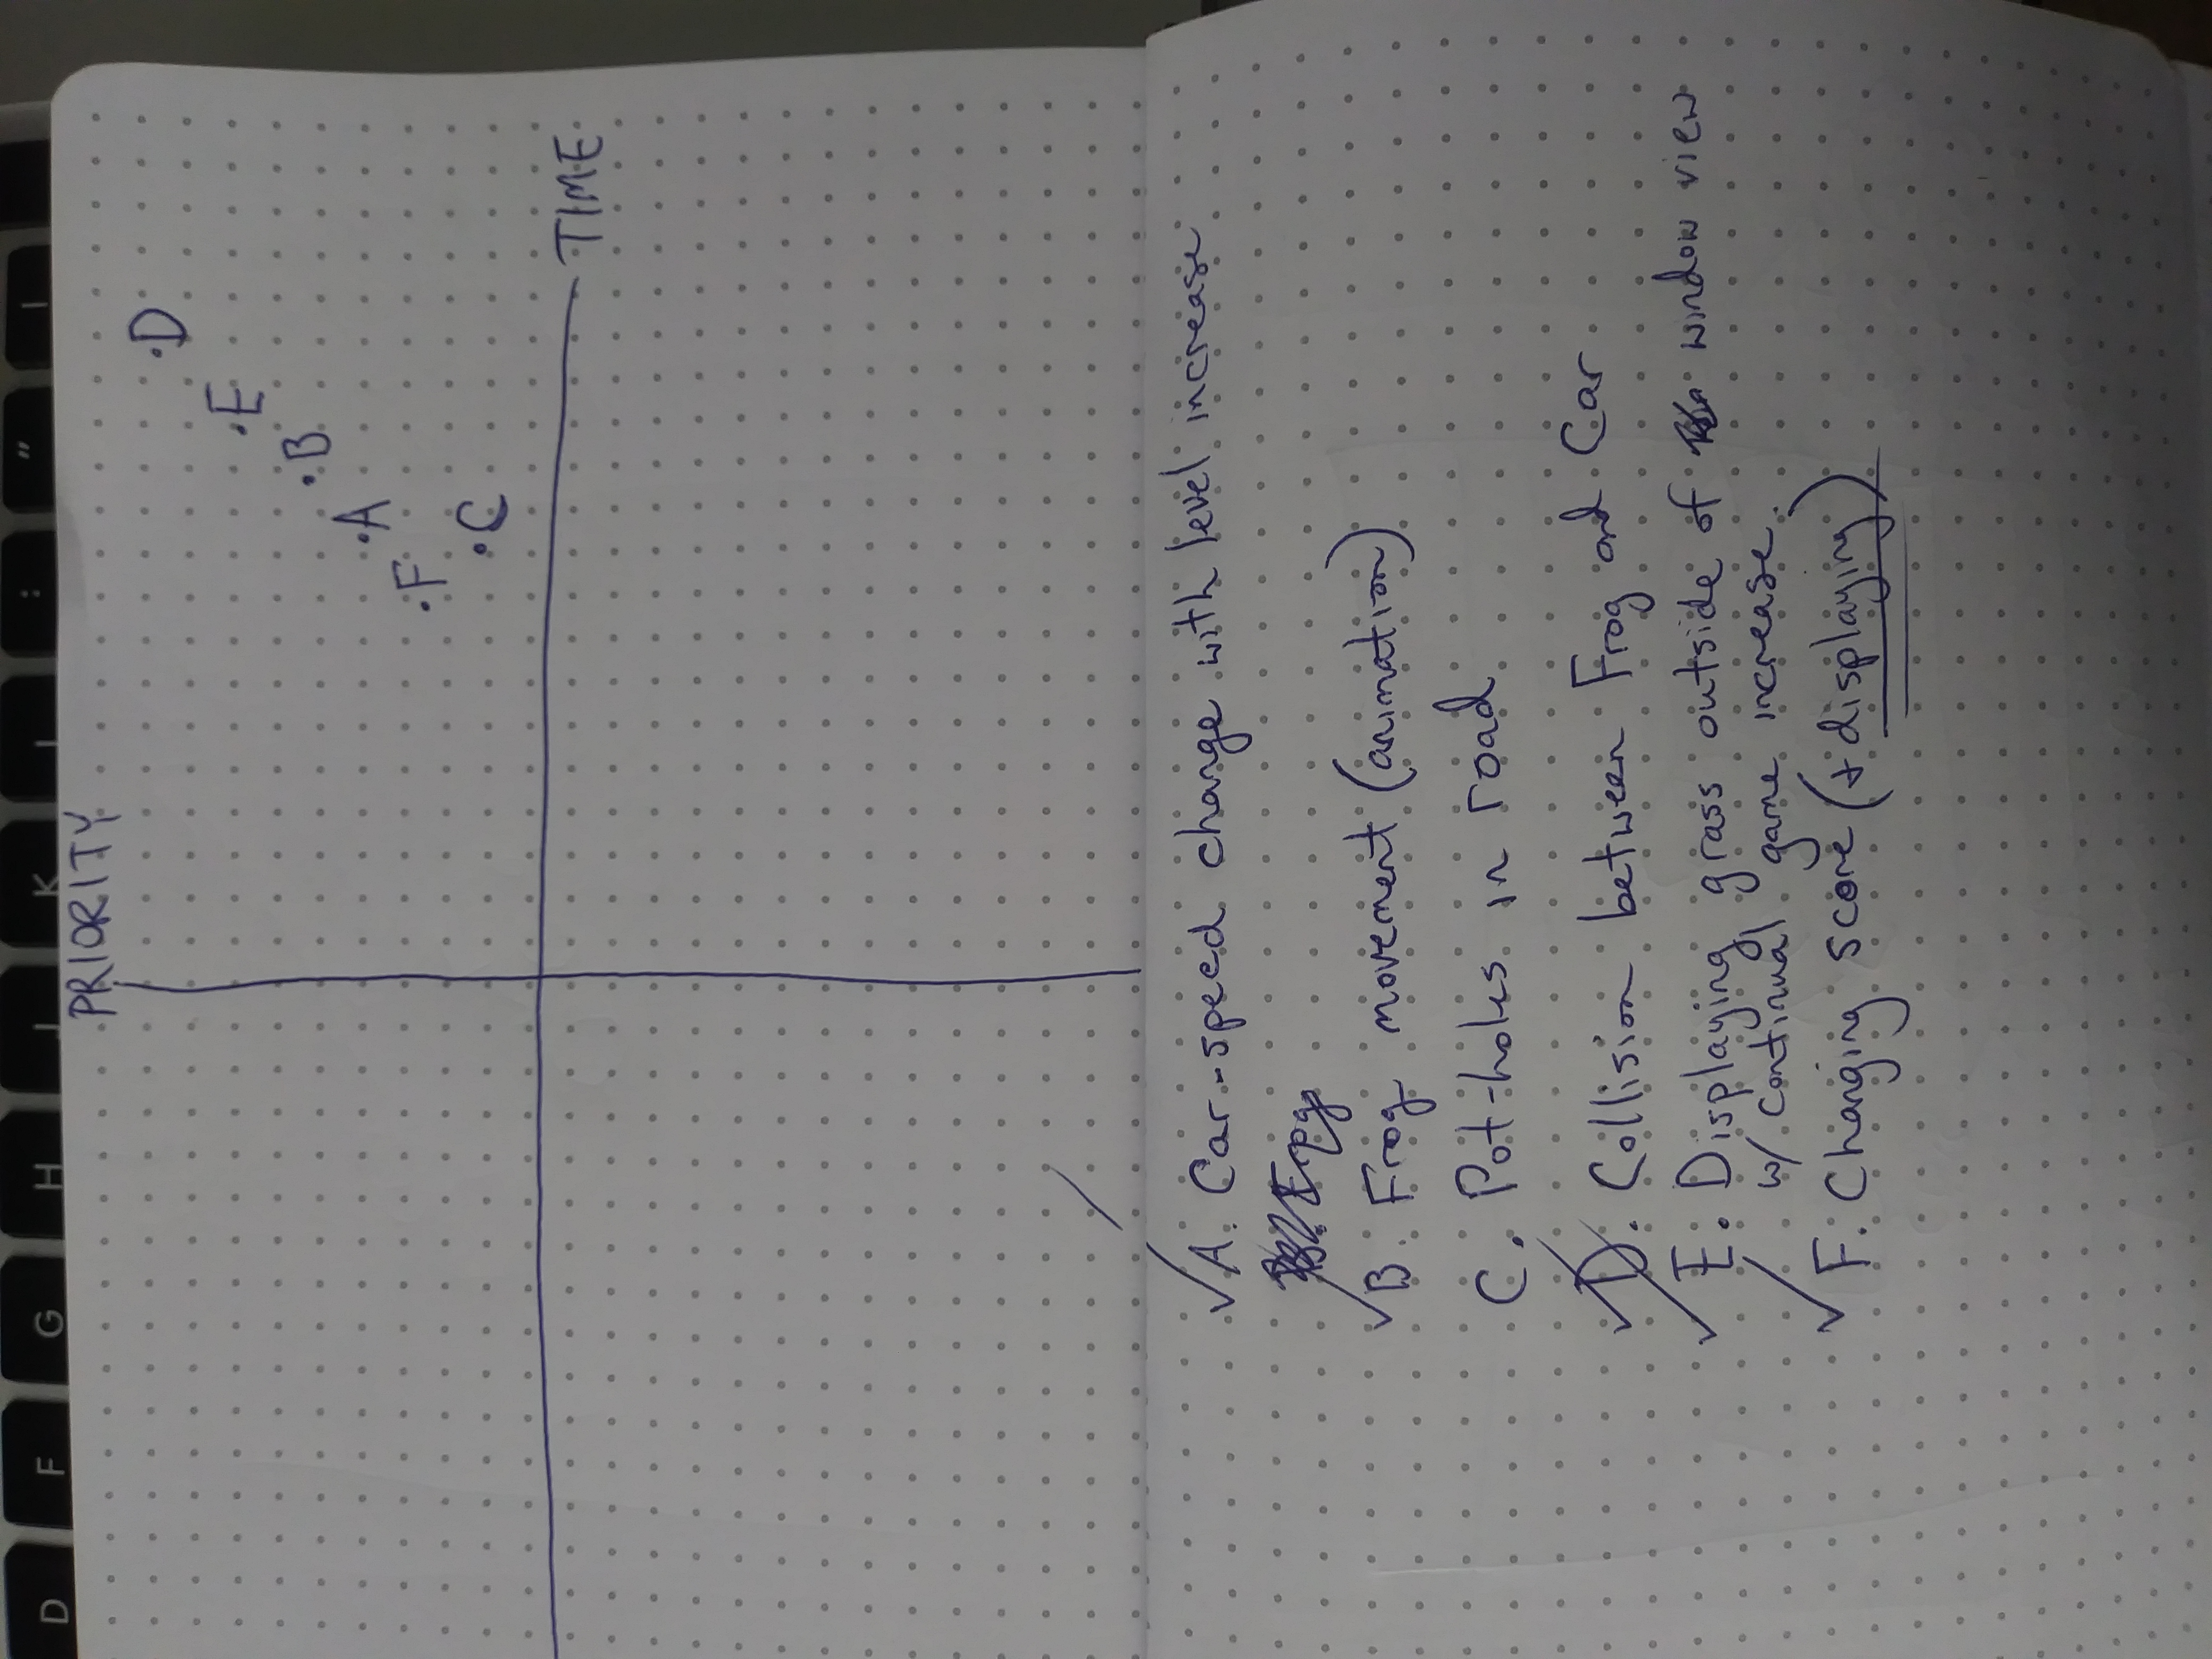 D F G H J K L : " |
PRIORITY
D
E
B
A
F
C
TIME
A. Car-speed change with level increase
B. Frog
B. Frog movement (animation)
C. Pot-holes in road
D. Collision between Frog and Car
E. Displaying grass outside of window view
w/ continual game increase.
F. Changing score (+ displaying)